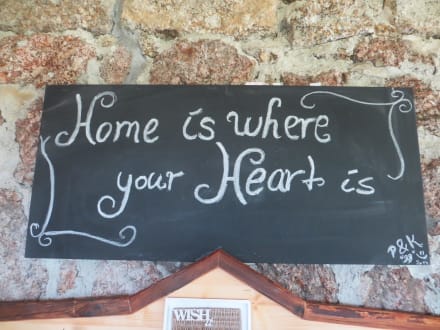 Home is where
your Heart is
P&K
WISH